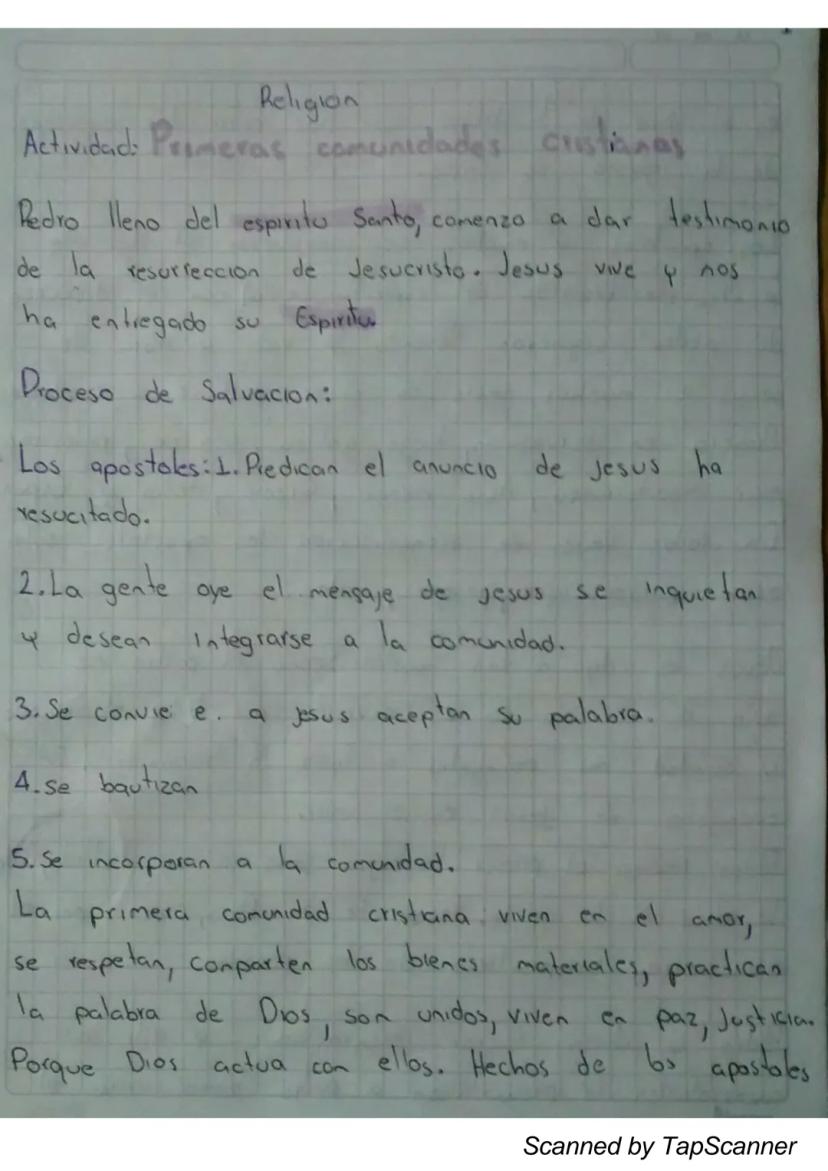 Religion
Actividad: Primeras comunidades cristianas
Pedro lleno del espiritu Santo, comenzo a dar testimonio
de la resurreccion de Jesucristo. Jesus vive y nos
ha entregado su Espiritu
Proceso de Salvacion:
Los apostoles: 1. Predican el anuncio de jesus ha
resucitado.
2. La gente oye el mensaje de jesus se inquietan
y desean integrarse a la comunidad.
3. Se a jesus aceptan su palabra.
4. se bautizan
5. Se incorporan a la comunidad.
La primera comunidad cristiana viven en el amor,
se respetan, comparten los bienes materiales, practican
la palabra de Dios, son unidos, viven en paz, Justicia.
Porque Dios actua con ellos. Hechos de los apostoles
Scanned by TapScanner